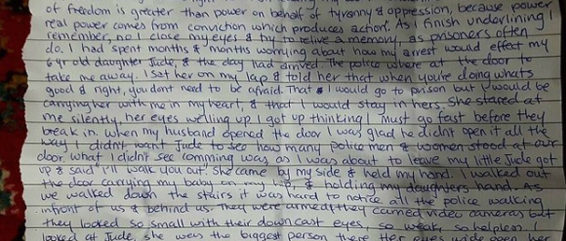 of freedom is greater than power on behalf of tyranny & oppression, because power
real power comes from conviction which produces action'. As I finish underlining I
remember, no I close my eyes & try to relive a memory, as prisoners often
do. I had spent months & months worrying about how my arrest would effect my
6 yr old daughter Jude, & the day had arrived. The police where at the door to
take me away. I sat her on my lap & told her that when you're doing whats
good & right, you dont need to be afraid. That I would go to prison but I would be
carrying her with me in my heart, & that I would stay in hers. She stared at
me silently, her eyes welling up I got up thinking I must go fast before they
break in. when my husband opened the door I was glad he didnt open it all the
way I didnt want Jude to see how many police men & women stood at our
door. what I didn't see comming was as I was about to leave my little Jude got
up & said I'll walk you out. She came by my side & held my hand. I walked out
the door carrying my baby on my hip, & holding my daughters hand. As
we walked down the stairs it was hard to notice all the police walking
infront of us & behind us. they were armed, they carried video cameras but
they looked so small with their downcast eyes, so weak, so helpless. I
looked at Jude, she was the biggest person there. Her eyes wide open her